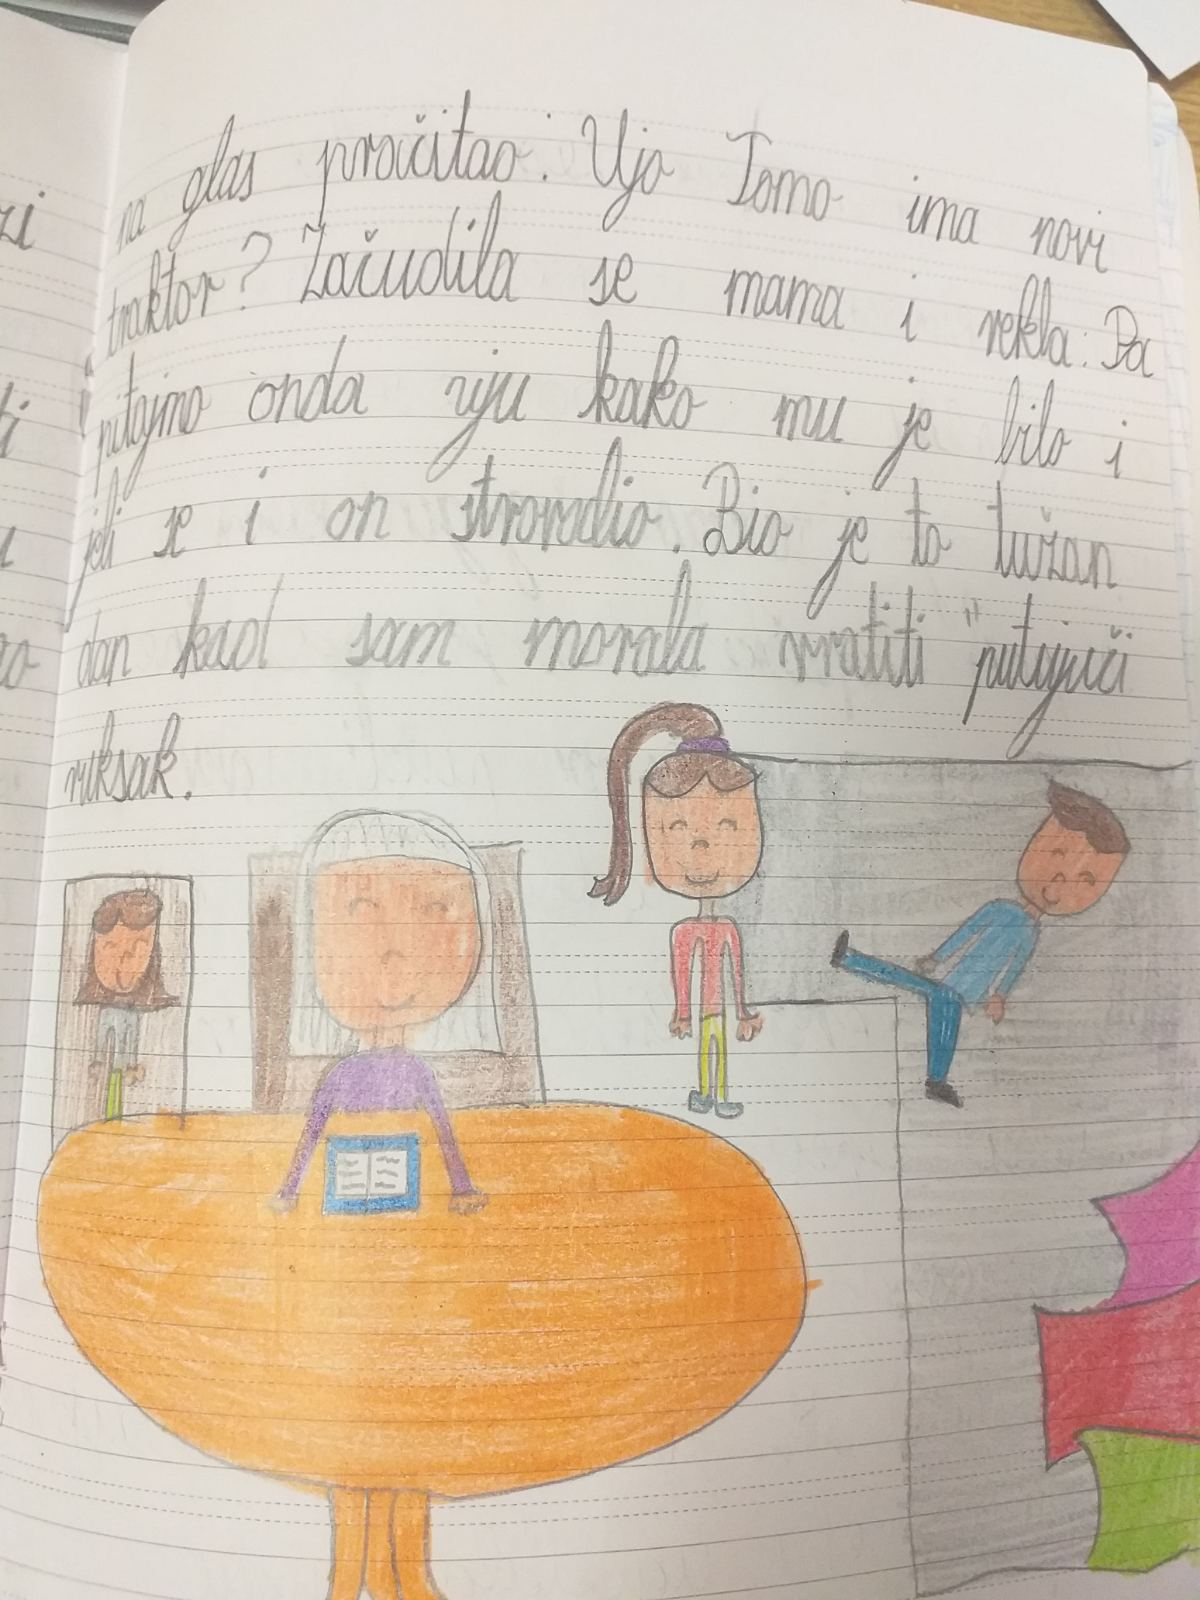 na glas pročitao. Ujo Tomo ima novi
traktor? Začudila se mama i rekla: Pa
pitajmo onda uju kako mu je bilo i
jeli se i on stravdio. Bio je to tužan
dan kad sam morala vratiti "putujući
ruksak.